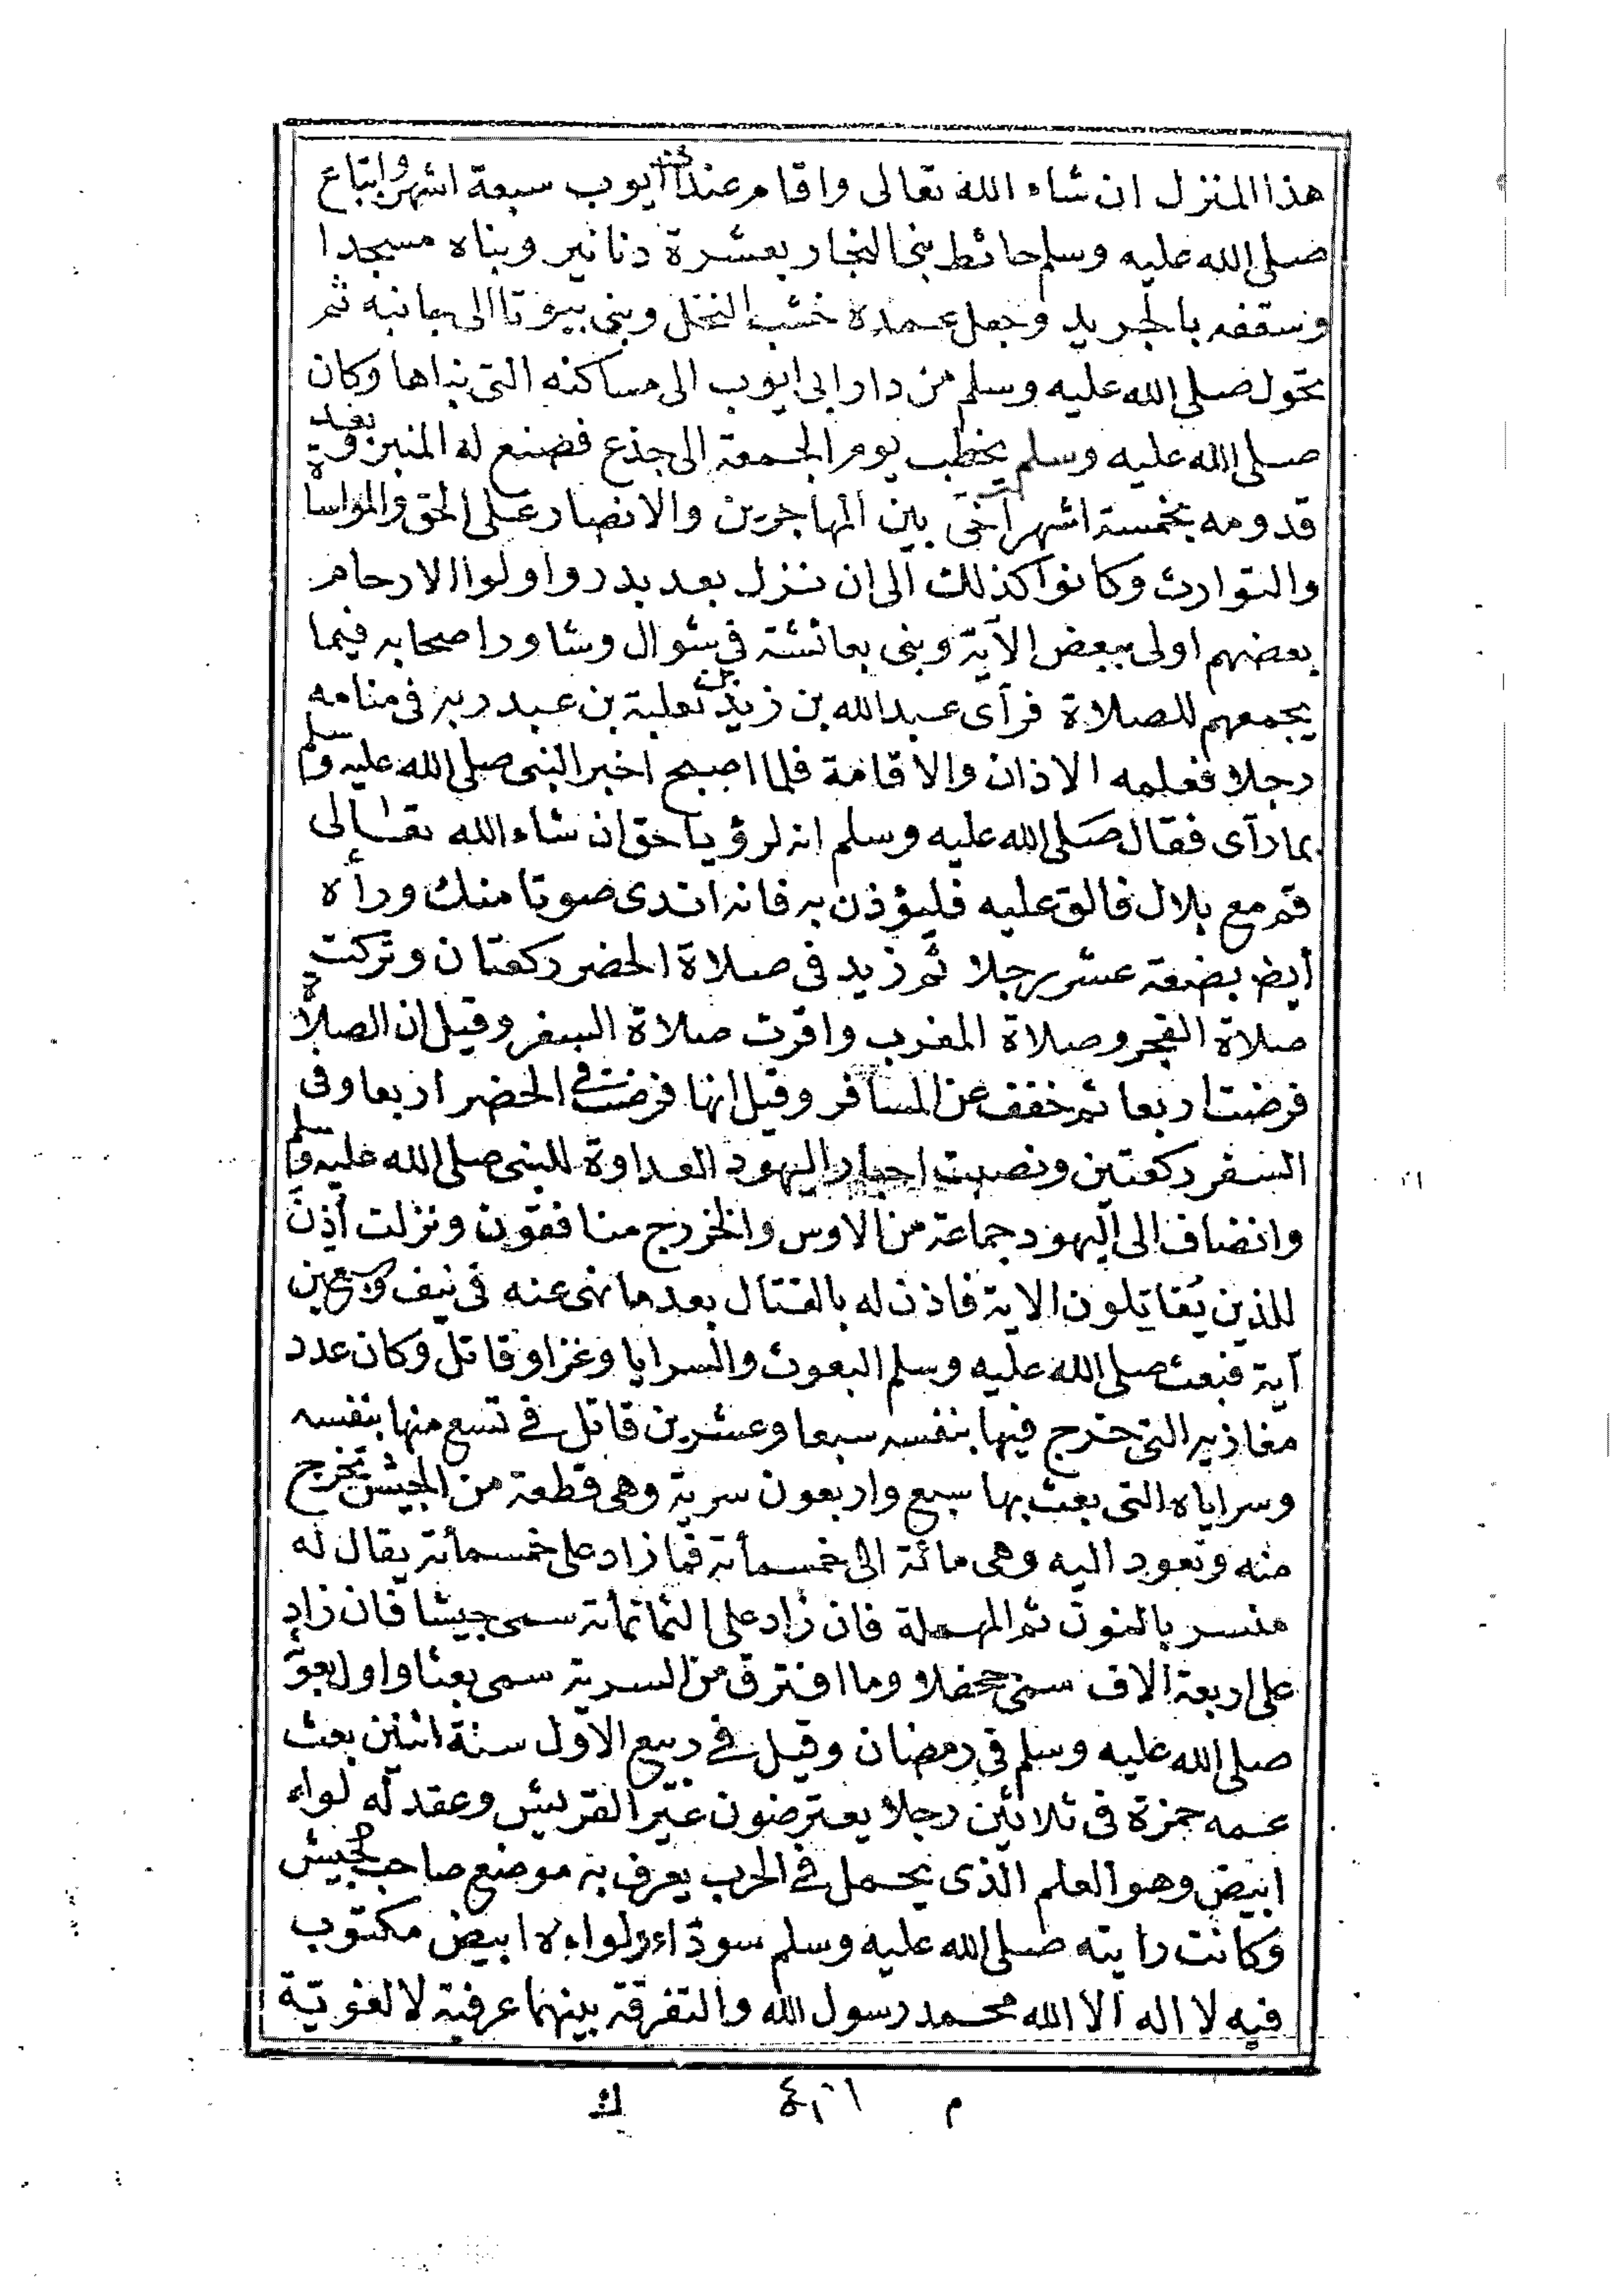 هذا المنزل ان شاء الله تعالى واقام عند ابى ايوب سبعة اشهر وابتاع
صلى الله عليه وسلم حائط بنى النجار بعشرة دنانير وبناه مسجدا
وسقفه بالجريد وجعل عمده خشب النخل وبنى بيوتا الى جانبه ثم
تحول صلى الله عليه وسلم من دار ابى ايوب الى مساكنه التى بناها وكان
صلى الله عليه وسلم يخطب يوم الجمعة الى جذع فصنع له المنبر وبعد
قدومه بخمسة اشهر آخى بين المهاجرين والانصار على الحق والمواساة
والتوارث وكانوا كذلك الى ان نزل بعد بدر واولوا الارحام
بعضهم اولى ببعض الآية وبنى بعائشة فى شوال وشاور اصحابه فيما
يجمعهم للصلاة فرآى عبدالله بن زيد بن ثعلبة بن عبد ربه فى منامه
رجلا فعلمه الاذان والاقامة فلما اصبح اخبر النبى صلى الله عليه وسلم
بما رآى فقال صلى الله عليه وسلم انه لرؤيا حق ان شاء الله تعالى
قم مع بلال فالق عليه فليؤذن به فانه اندى صوتا منك ورأه
أيض بضعة عشر رجلا ثم زيد فى صلاة الحضر ركعتان وتركت
صلاة الفجر وصلاة المغرب واقرت صلاة السفر وقيل ان الصلاة
فرضت اربعا ثم خفف عن المسافر وقيل انها فرضت فى الحضر اربعا وفى
السفر ركعتين ونصبت احبار اليهود العداوة للنبى صلى الله عليه وسلم
وانضاف الى اليهود جماعة من الاوس والخزرج منافقون ونزلت أذن
للذين يقاتلون الاية فاذن له بالقتال بعد ما نهى عنه فى نيف وسبعين
آية فبعث صلى الله عليه وسلم البعوث والسرايا وغزا وقاتل وكان عدد
مغازيه التى خرج فيها بنفسه سبعا وعشرين قاتل فى تسع منها بنفسه
وسراياه التى بعث بها سبع واربعون سرية وهى قطعة من الجيش تخرج
منه وتعود اليه وهى مائة الى خمسمأة فما زاد على خمسمأة يقال له
منسر بالنون ثم المهملة فان زاد على الثمانمأة سمى جيشا فان زاد
على اربعة الاف سمى جحفلا وما افترق من السرية سمى بعثا واول بعوث
صلى الله عليه وسلم فى رمضان وقيل فى ربيع الاول سنة اثنين بعث
عمه حمزة فى ثلاثين رجلا يعترضون عير القريش وعقد له لواء
ابيض وهو العلم الذى يحمل فى الحرب يعرف به موضع صاحب الجيش
وكانت رايته صلى الله عليه وسلم سوداء ولواءه ابيض مكتوب
فيه لا اله الا الله محمد رسول الله والتفرقة بينهما عرفية لا لغوية